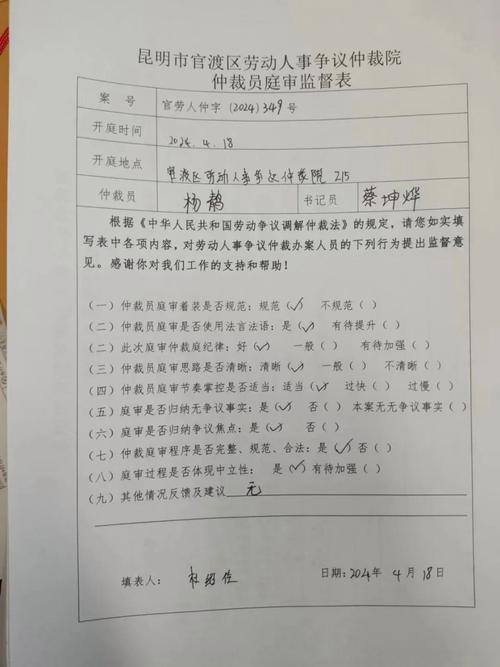 昆明市官渡区劳动人事争议仲裁院
仲裁员庭审监督表
案 号 官劳人仲字 (2024) 349 号
开庭时间 2024.4.18
开庭地点 官渡区劳动人事争议仲裁院 215
仲裁员 杨鹊 书记员 蔡坤烨
根据《中华人民共和国劳动争议调解仲裁法》的规定，请您如实填
写表中各项内容，对劳动人事争议仲裁办案人员的下列行为提出监督意
见。感谢你对我们工作的支持和帮助！
（一）仲裁员庭审着装是否规范：规范（✓） 不规范（ ）
（二）仲裁员庭审是否使用法言法语：是（✓） 有待提升（ ）
（二）此次庭审仲裁庭纪律：好（✓） 一般（ ） 有待加强（ ）
（三）仲裁员庭审思路是否清晰：清晰（✓） 一般（ ） 不清晰（ ）
（四）仲裁员庭审节奏掌控是否适当：适当（✓） 过快（ ） 过慢（ ）
（五）庭审是否归纳无争议事实：是（✓） 否（ ） 本案无无争议事实（ ）
（六）庭审是否归纳争议焦点：是（✓） 否（ ）
（七）仲裁庭审程序是否完整、规范、合法：是（✓）否（ ）
（八）庭审过程是否体现中立性： 是（✓）有待加强（ ）
（九）其他情况反馈及建议 无
填表人： 杜绍佐 日期：2024年 4 月 18日